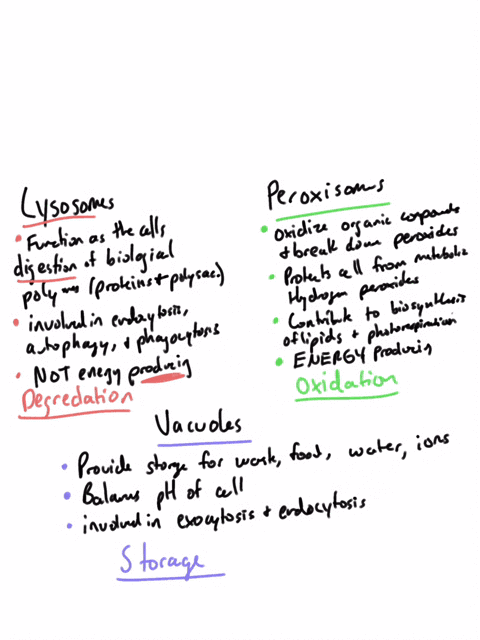 Lysosomes
• Function as the cells
digestion of biological
(proteins + polysac.)
• involved in endocytosis,
autophagy, + phagocytosis
• NOT energy producing
Degredation
Peroxisomes
• oxidize organic compounds
+ break down peroxides
• Protects cell from metabolic
Hydrogen peroxides
• Contribute to biosynthesis
of lipids + photorespiration
• ENERGY Producing
Oxidation
Vacuoles
• Provide storge for food, water, ions
• pH of cell
• involved in exocytosis + endocytosis
Storage